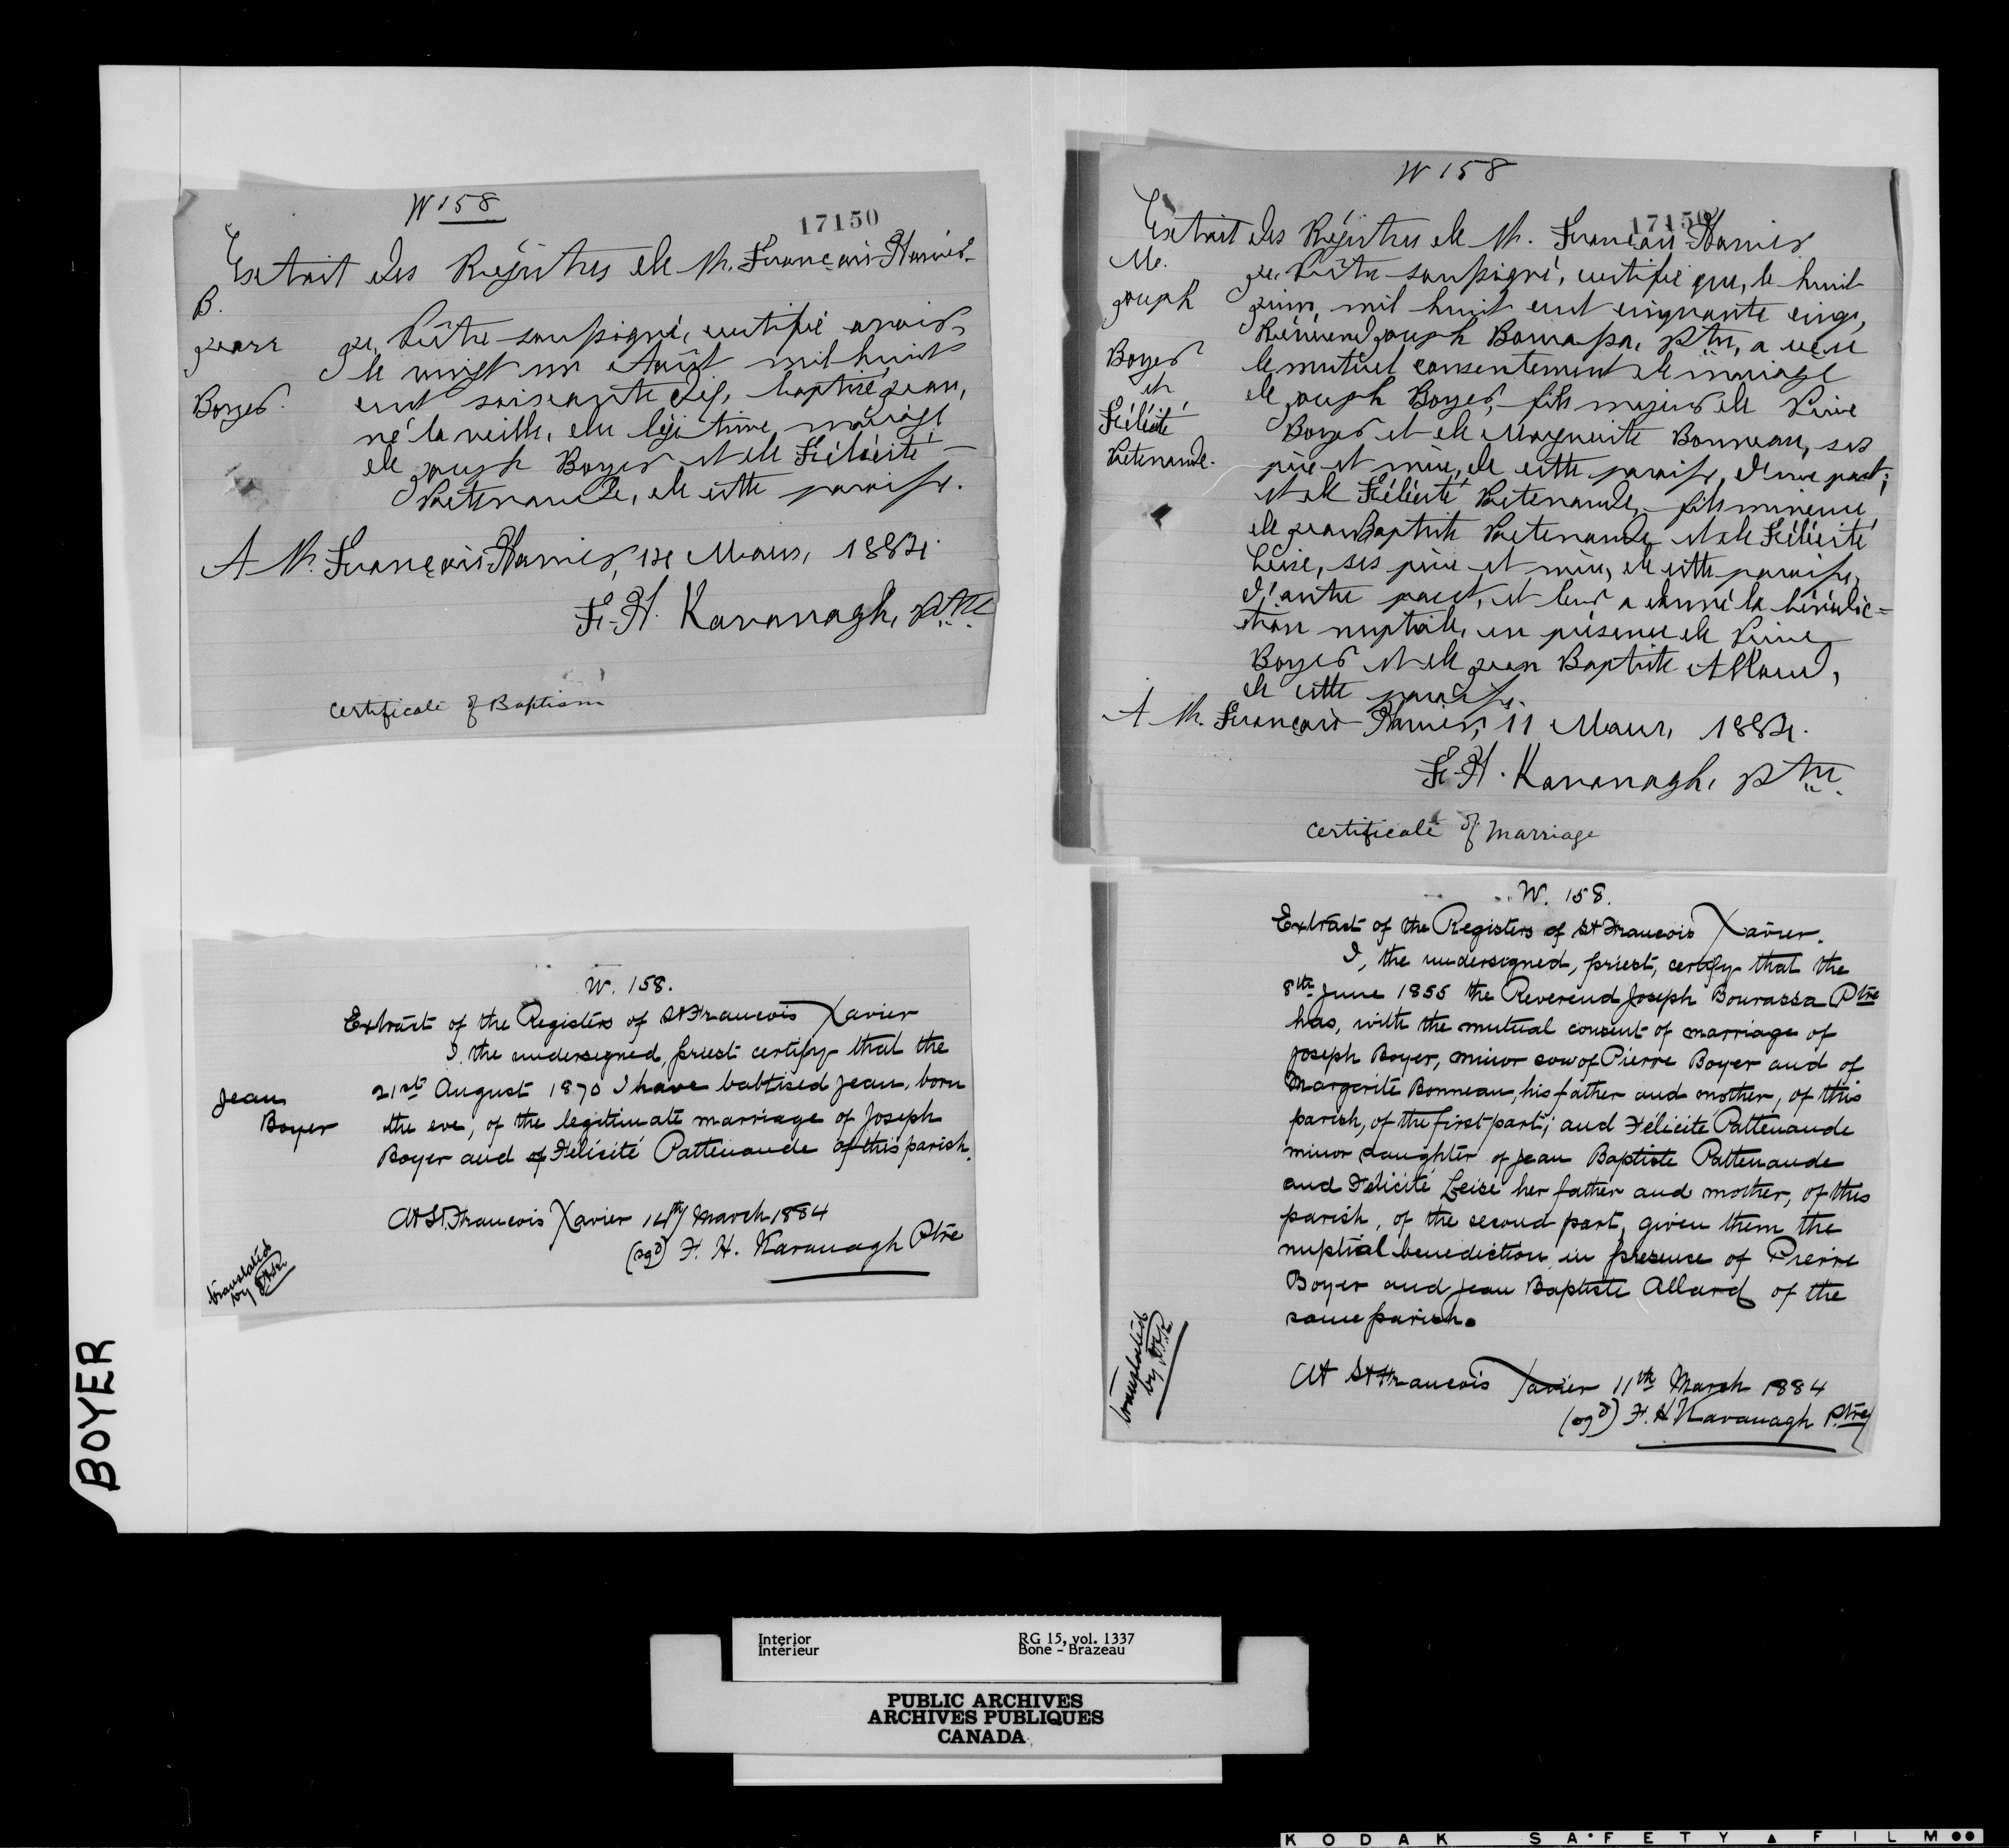 W 158
17150
Extrait des Régistres de St. François-Xavier
B.
Jean
Boyer.
Je, Prêtre soussigné, certifie avoir
le vingt un Août mil huit
cent soixante dix, baptisé Jean,
né la veille, du légitime mariage
de Joseph Boyer et de Félicité
Patenaude, de cette paroisse.
A St. François-Xavier, 14 Mars, 1884.
F. H. Kavanagh, Ptre
Certificate of Baptism
W. 158.
Extract of the Registers of St Francois Xavier
I, the undersigned, priest certify that the
Jean
Boyer
21st August 1870 I have babtised Jean, born
the eve, of the legitimate marriage of Joseph
Boyer and of Félicité Pattenaude of this parish.
At St. Francois Xavier 14th March 1884
(sgd) F. H. Kavanagh Ptre
translated
by
W 158
17150
Extrait des Régistres de St. François-Xavier
M.
Joseph
Boyer
et
Félicité
Patenaude.
Je, Prêtre soussigné, certifie que, le huit
Juin, mil huit cent cinquante cinq,
Révérend Joseph Bourassa, Ptre, a reçu
le mutuel consentement de mariage
de Joseph Boyer, fils majeur de Pierre
Boyer et de Marguerite Bonneau, ses
père et mère, de cette paroisse, d'une part;
et de Félicité Patenaude, fille mineure
de Jean Baptiste Patenaude et de Félicité
Leise, ses père et mère, de cette paroisse,
d'autre part, et leur a donné la bénédic=
tion nuptiale, en présence de Pierre
Boyer et de Jean Baptiste Allard,
de cette paroisse.
A St. François-Xavier, 11 Mars, 1884.
F. H. Kavanagh, Ptre
Certificate of Marriage
W. 158.
Extract of the Registers of St Francois Xavier.
I, the undersigned, priest, certify that the
8th June 1855 the Reverend Joseph Bourassa Ptre
has, with the mutual consent of marriage of
Joseph Boyer, minor son of Pierre Boyer and of
Margerite Bonneau, his father and mother, of this
parish, of the first part; and Félicité Pattenaude
minor daughter of Jean Baptiste Pattenaude
and Félicité Leise her father and mother, of this
parish, of the second part, given them the
nuptial benediction in presence of Pierre
Boyer and Jean Baptiste Allard of the
same parish.
At St Francois Xavier 11th March 1884
(sgd) F. H Kavanagh Ptre
translated
by
BOYER
Interior
Intérieur
RG 15, vol. 1337
Bone - Brazeau
PUBLIC ARCHIVES
ARCHIVES PUBLIQUES
CANADA
KODAK SAFETY FILM